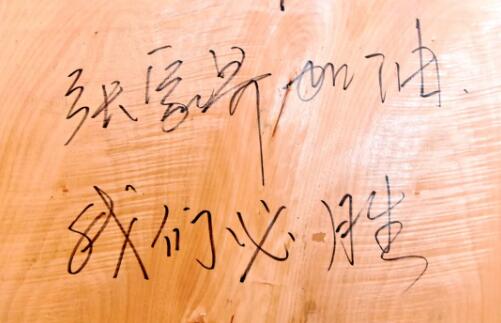 张家界加油.
我们必胜